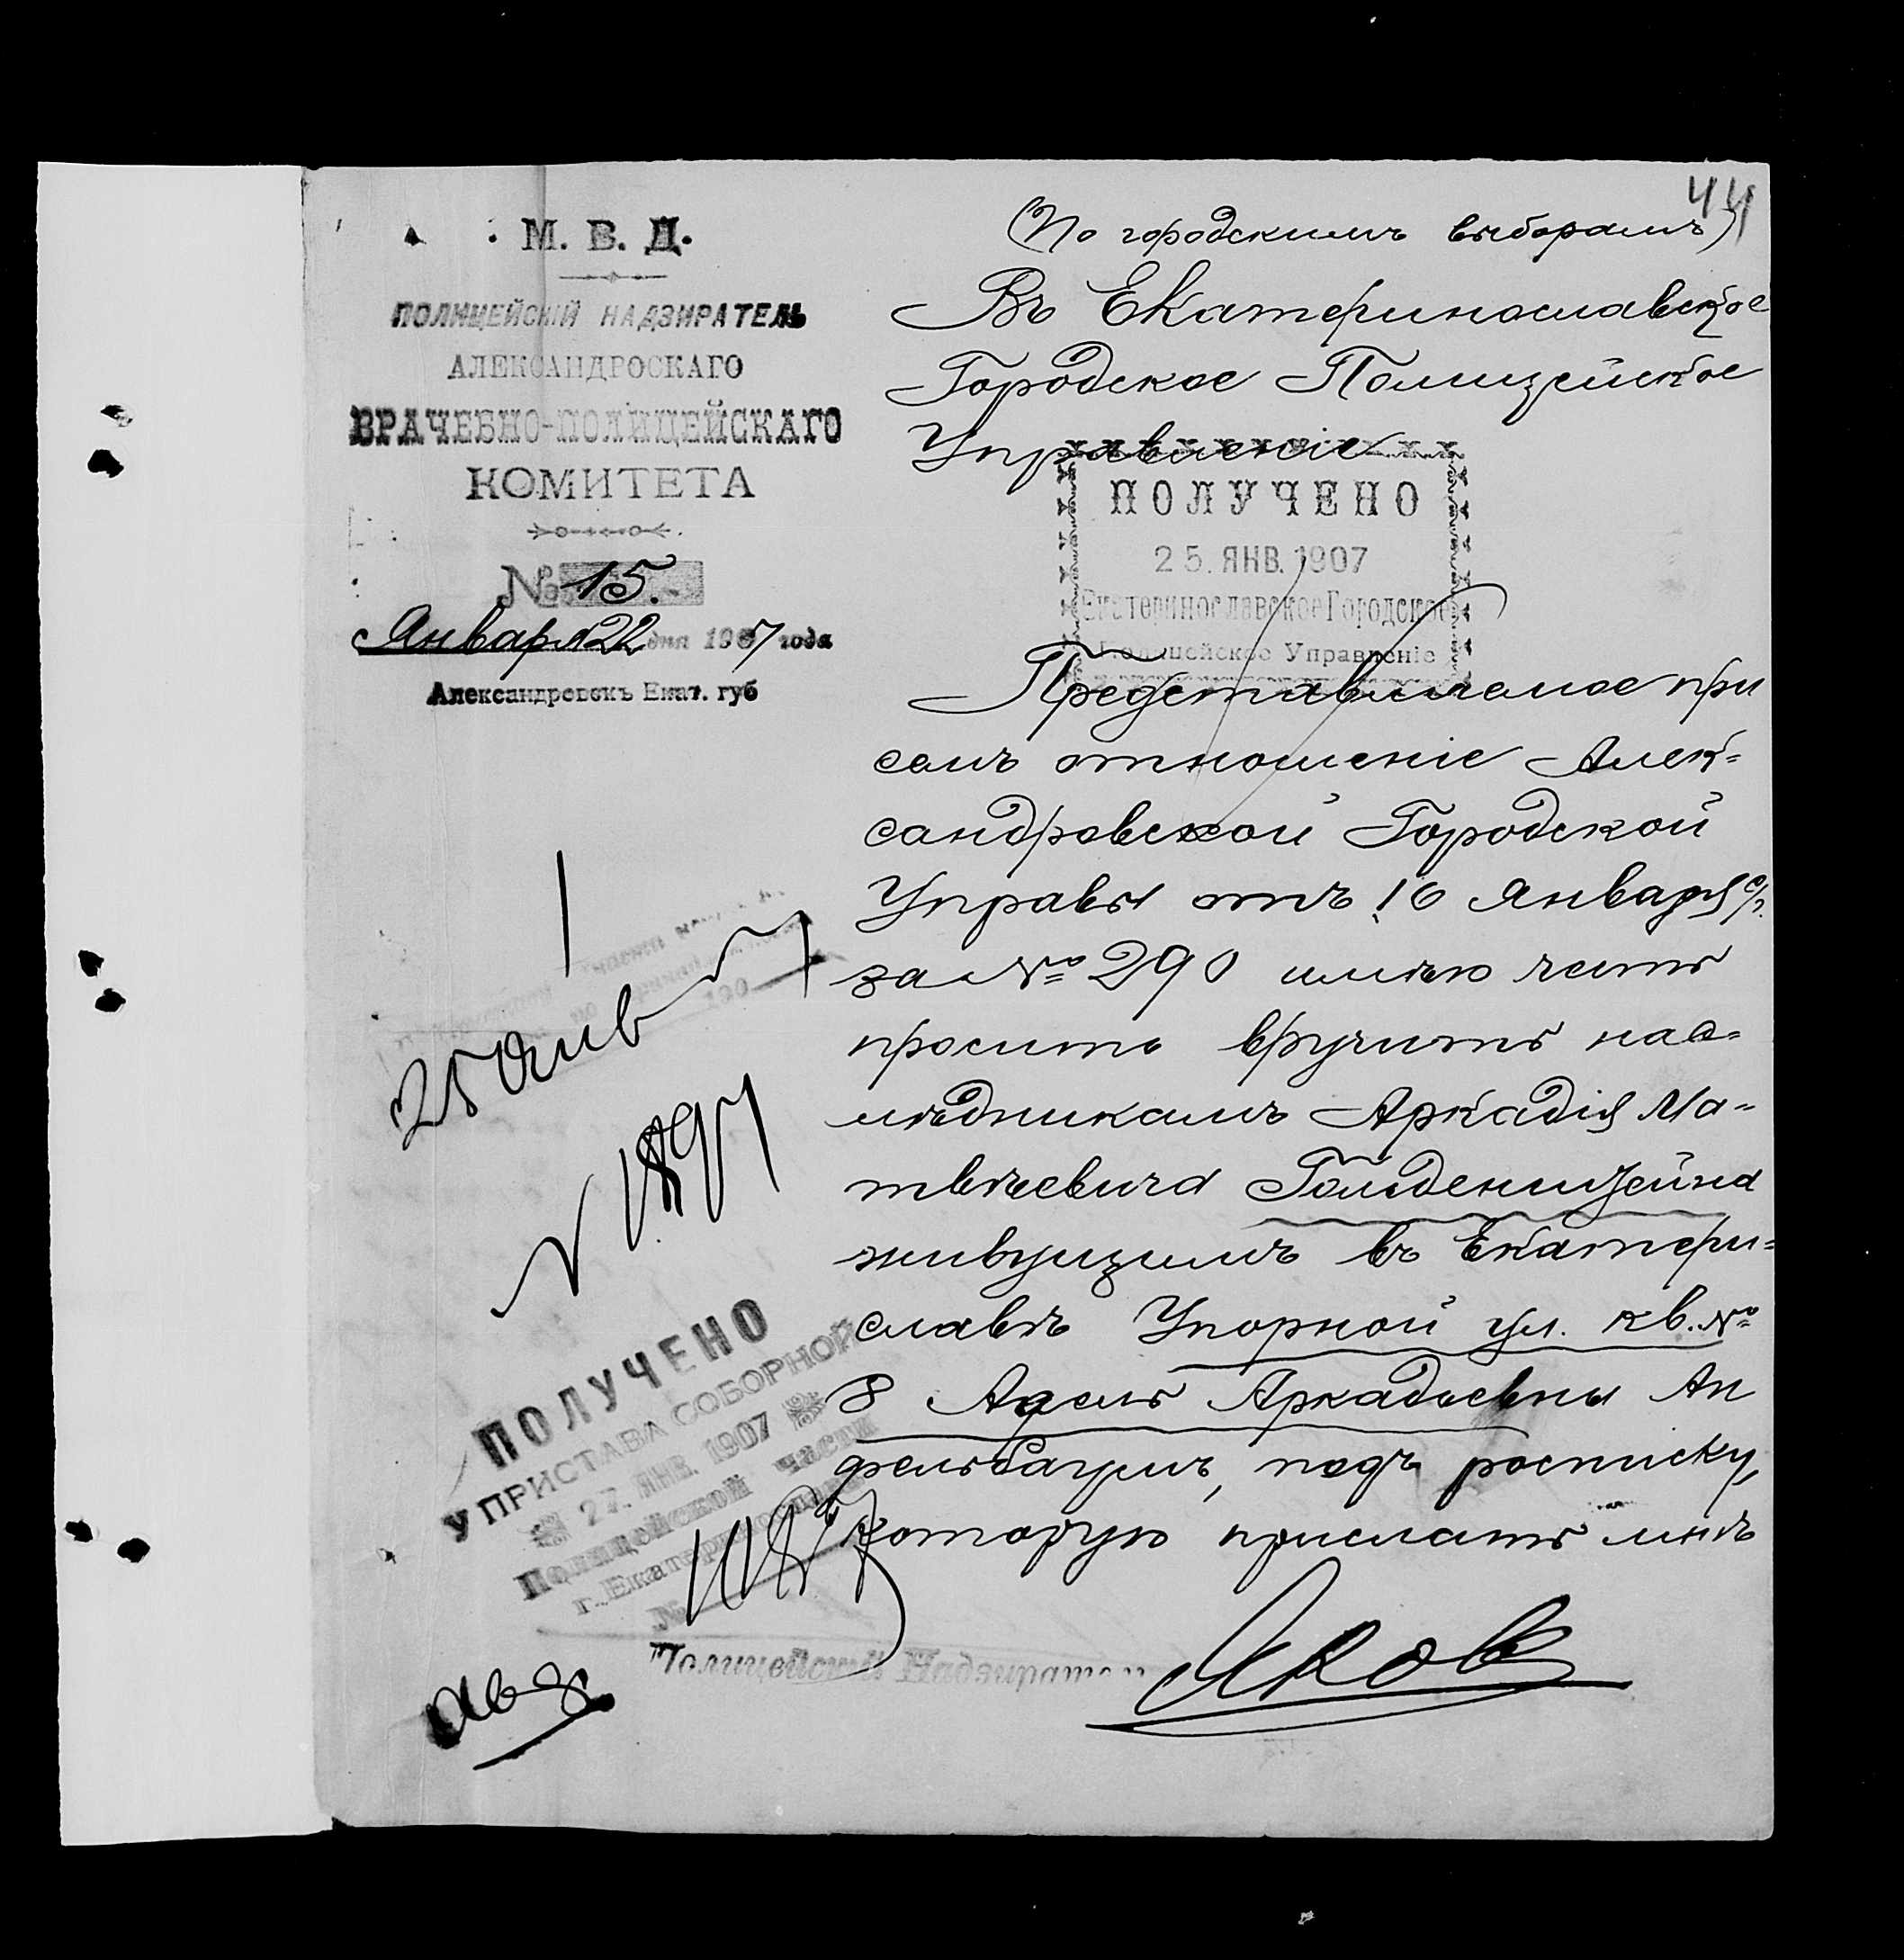 44
М. В. Д.
ПОЛИЦЕЙСКІЙ НАДЗИРАТЕЛЬ
АЛЕКСАНДРОСКАГО
ВРАЧЕБНО-ПОЛИЦЕЙСКАГО
КОМИТЕТА
№ 15.
Января 22 дня 1907 года
Александровскъ Екат. губ
(По городскимъ выборамъ)
Въ Екатеринославское
Городское Полицейское
Управленіе
ПОЛУЧЕНО
25. ЯНВ. 1907
Екатеринославское Городское
Полицейское Управленіе
Представляемое при
семъ отношеніе Алек=
сандровской Городской
Управы отъ 16 Января с/г.
за № 290 имѣю честь
просить вручить нас=
лѣдникамъ Аркадія Ма=
твѣевича Гольденвейзена
живущимъ въ Екатери=
славѣ Упорной ул. кв. №
8 Адель Аркадьевны Ап
фельбаумъ, подъ росписку,
которую прислать мнѣ
Полицейскій Надзиратель
25 Янв 7
№ 1897
ПОЛУЧЕНО
У ПРИСТАВА СОБОРНОЙ
27. ЯНВ. 1907
Полицейской части
г. Екатеринослава
№